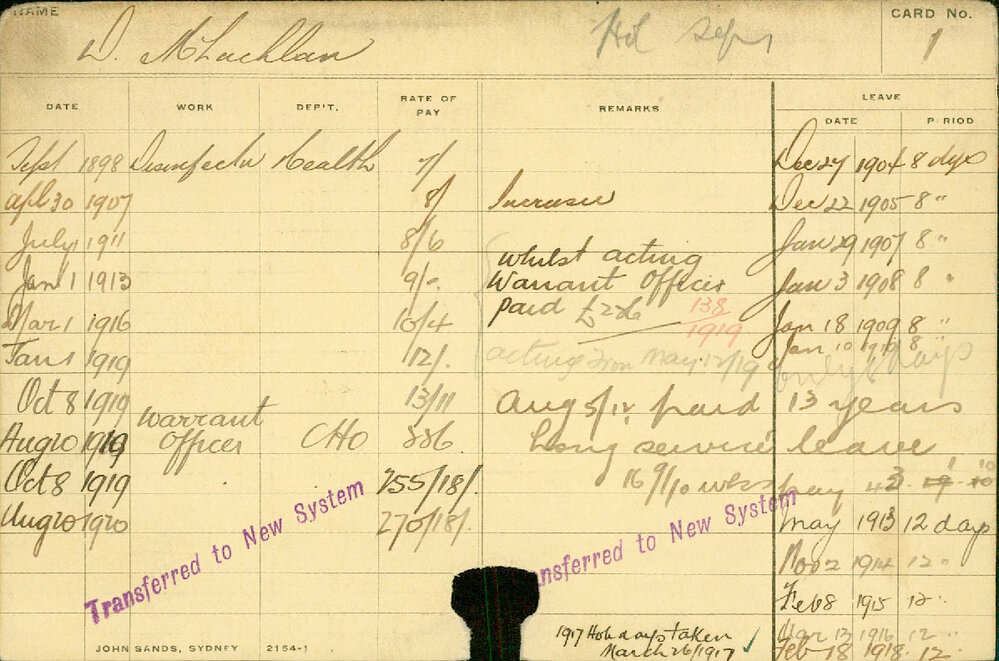 NAME
D. McLachlan
CARD No.
1
DATE WORK DEP'T. RATE OF PAY REMARKS LEAVE
DATE PERIOD
Sept 1898 Disinfector Health 7/ Dec 27 1904 8 dys
Apl 30 1907 8/ Increase Dec 22 1905 8 "
July 1911 8/6 Jan 29 1907 8 "
Jan 1 1913 9/- whilst acting Warrant Officer Jan 3 1908 8 "
Mar 1 1916 10/4 paid £226 138/1919 Jan 18 1909 8 "
Jan 10 1919 8 "
Jan 1 1919 12/- acting from May 12/19 only 8 days
Oct 8 1919 13/11 Aug 5/12 paid 13 years
Aug 20 1919 Warrant Officer CHO 226 Long service leave
Oct 8 1919 255/18/- 16 9/10 wks pay
Aug 20 1920 270/18/- May 1913 12 days
Transferred to New System
Transferred to New System
Nov 2 1914 12 "
Feb 8 1915 12 "
Mar 13 1916 12 "
Feb 18 1918 12 "
1917 Holidays taken
March 26/1917 ✓
JOHN SANDS, SYDNEY 2154-1